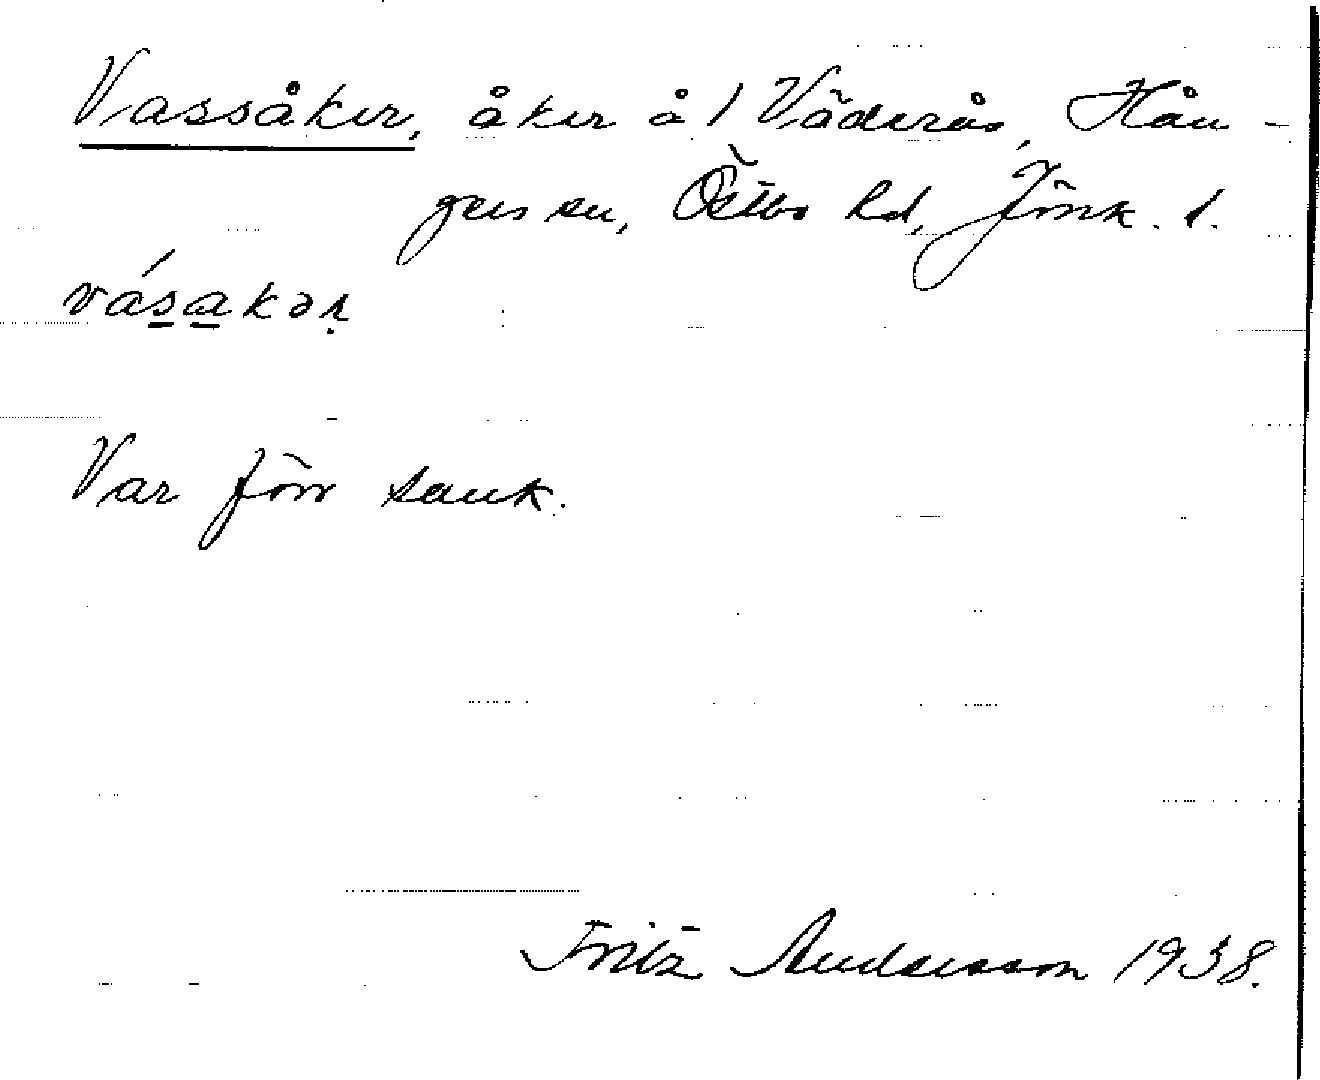 Vassåker, åker å 1 Väderås, Hån-
ger sn, Östbo hd, Jönk. l.
vásakər
Var förr sank.
Fritz Andersson 1938.